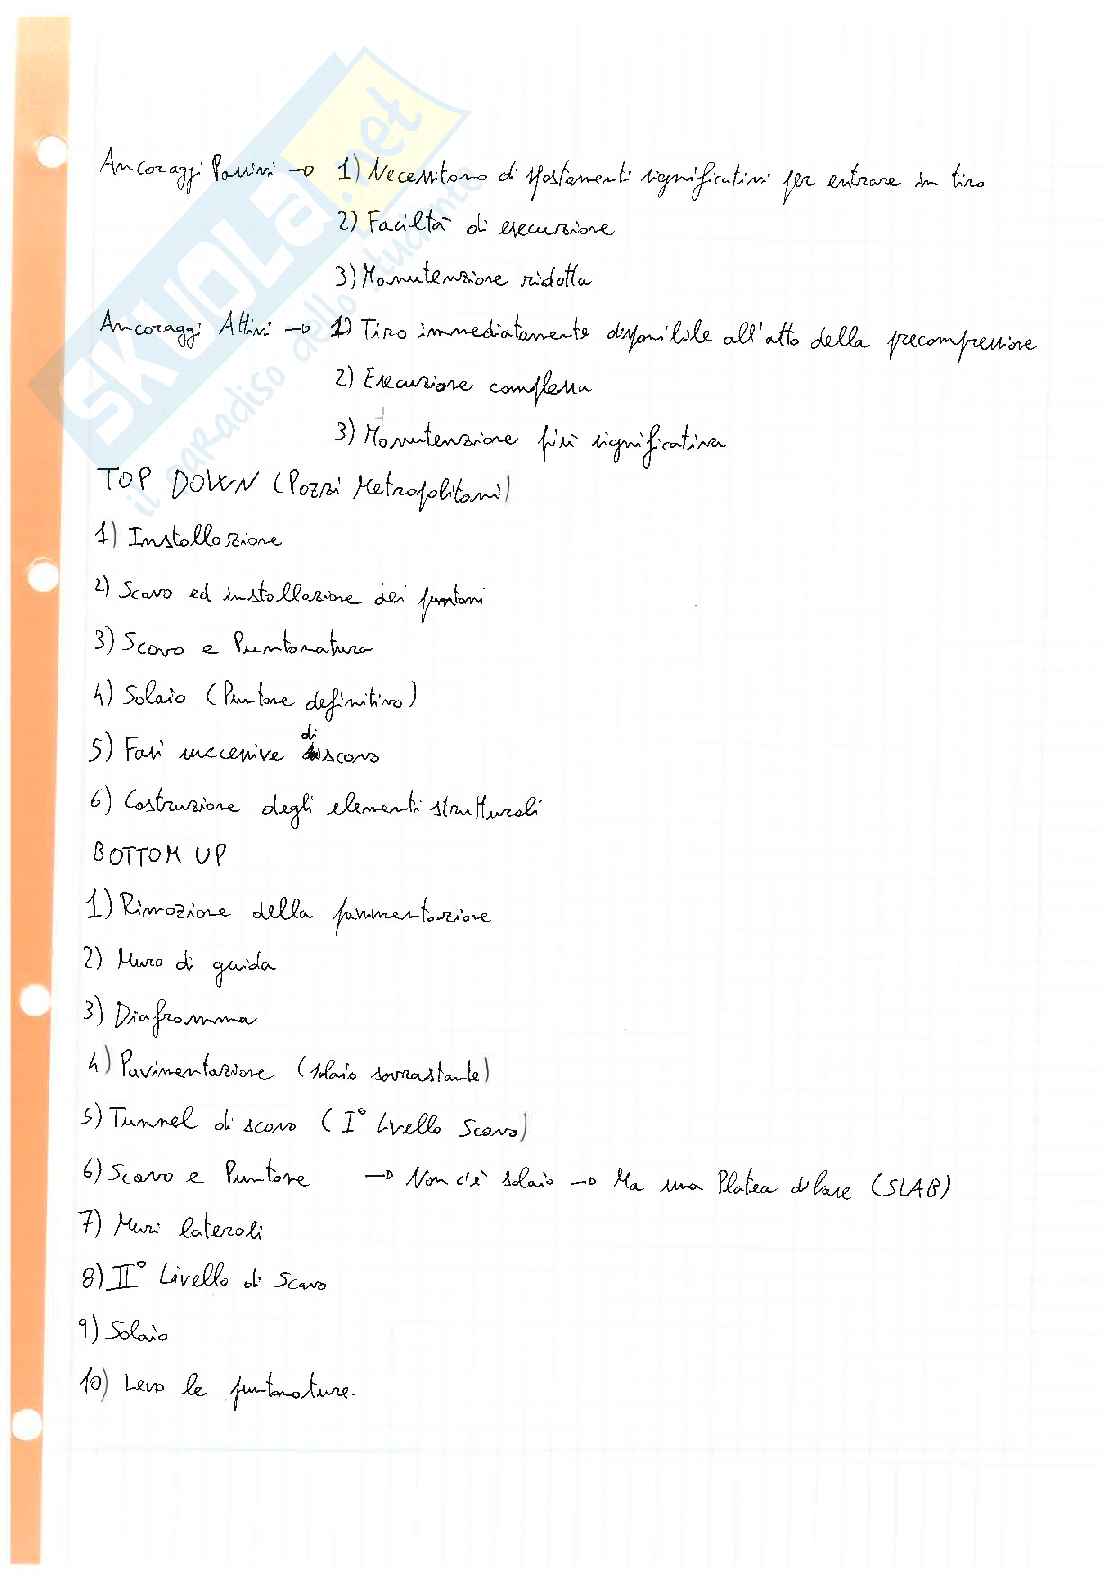 SKUOLA.net
il paradiso dello studente
Ancoraggi Passivi → 1) Necessitano di spostamenti significativi per entrare in tiro
2) Facilità di esecuzione
3) Manutenzione ridotta
Ancoraggi Attivi → 1) Tiro immediatamente disponibile all'atto della precompressione
2) Esecuzione complessa
3) Manutenzione più significativa
TOP DOWN (Pozzi Metropolitani)
1) Installazione
2) Scavo ed installazione dei puntoni
3) Scavo e Puntonatura
4) Solaio (Puntone definitivo)
5) Fasi successive di scavo
6) Costruzione degli elementi strutturali
BOTTOM UP
1) Rimozione della pavimentazione
2) Muro di guida
3) Diaframma
4) Pavimentazione (solaio sovrastante)
5) Tunnel di scavo (I° Livello Scavo)
6) Scavo e Puntone → Non c'è solaio → Ma una Platea di base (SLAB)
7) Muri laterali
8) II° Livello di Scavo
9) Solaio
10) Levo le puntonature.